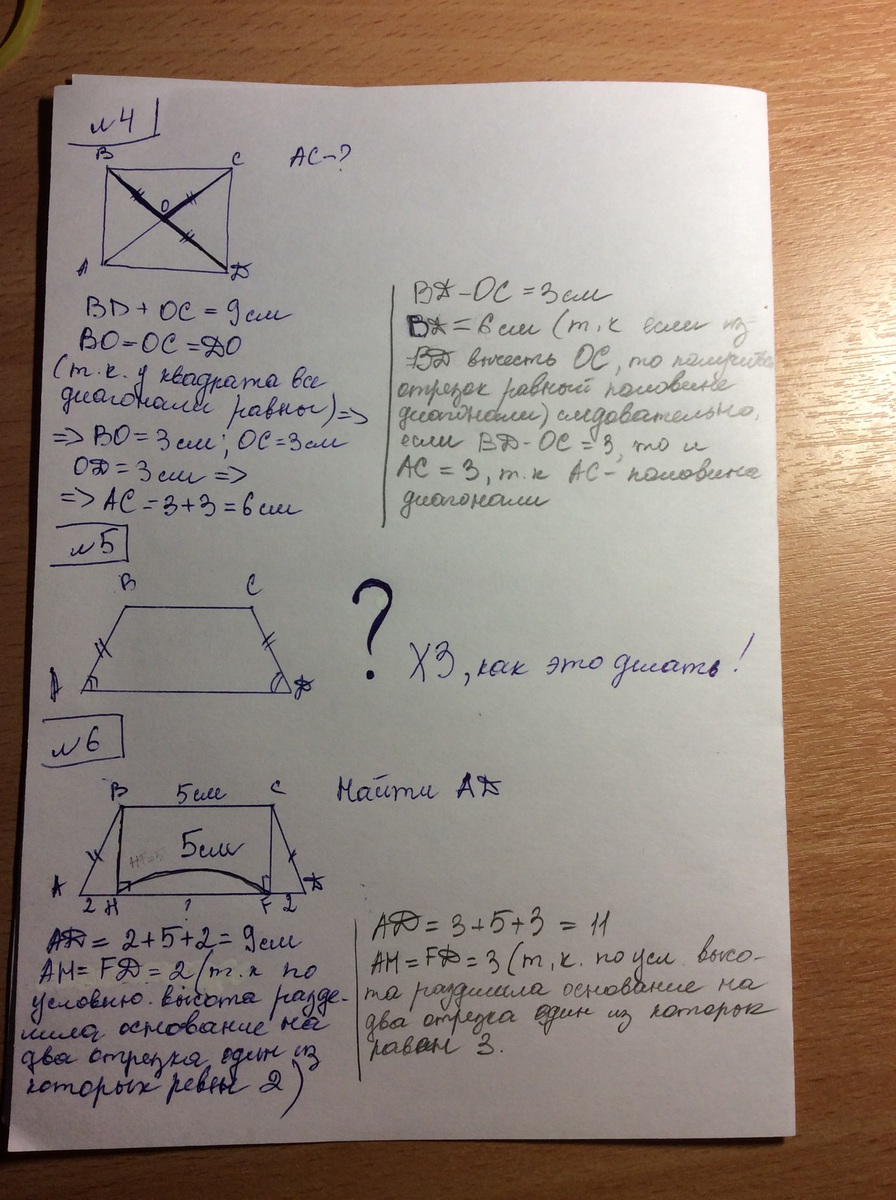 №4
B
C
AC-?
O
A
D
BD + OC = 9см
BO = OC = DO
(т.к. у квадрата все
диагонали равны) =>
=> BO = 3см; OC = 3см
OD = 3см =>
=> AC = 3+3 = 6см
BD - OC = 3см
BD = 6см (т.к если из
BD вычесть OC, то получится
отрезок равный половине
диагонали) следовательно,
если BD - OC = 3, то и
AC = 3, т.к AC - половина
диагонали
№5
B
C
A
D
?
ХЗ, как это делать!
№6
B
5см
C
Найти AD
5см
A
D
2
H
?
F
2
AD = 2+5+2 = 9см
AH = FD = 2 (т.к по
условию. высота разде-
лила основание на
два отрезка один из
которых ревны 2)
AD = 3+5+3 = 11
AH = FD = 3 (т,к. по усл. высо-
та разделила основание на
два отрезка один из которых
равен 3.